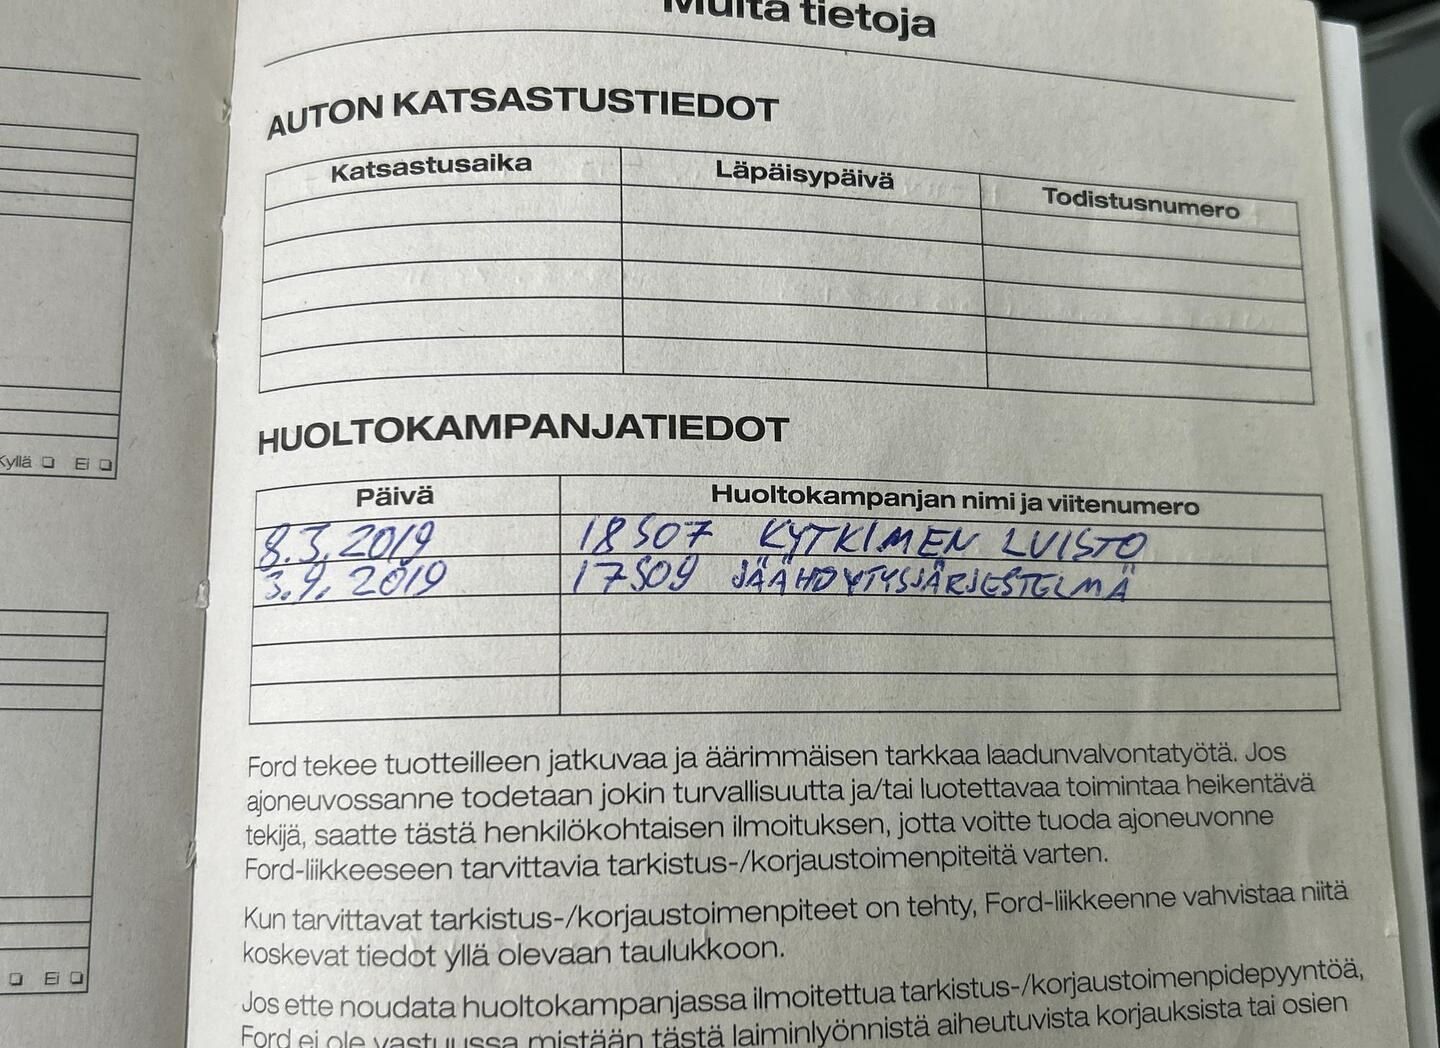 Muita tietoja
AUTON KATSASTUSTIEDOT
Katsastusaika Läpäisypäivä Todistusnumero
HUOLTOKAMPANJATIEDOT
Päivä Huoltokampanjan nimi ja viitenumero
8.3.2019 18S07 KYTKIMEN LUISTO
3.9.2019 17S09 JÄÄHDYTYSJÄRJESTELMÄ
Ford tekee tuotteilleen jatkuvaa ja äärimmäisen tarkkaa laadunvalvontatyötä. Jos
ajoneuvossanne todetaan jokin turvallisuutta ja/tai luotettavaa toimintaa heikentävä
tekijä, saatte tästä henkilökohtaisen ilmoituksen, jotta voitte tuoda ajoneuvonne
Ford-liikkeeseen tarvittavia tarkistus-/korjaustoimenpiteitä varten.
Kun tarvittavat tarkistus-/korjaustoimenpiteet on tehty, Ford-liikkeenne vahvistaa niitä
koskevat tiedot yllä olevaan taulukkoon.
Jos ette noudata huoltokampanjassa ilmoitettua tarkistus-/korjaustoimenpidepyyntöä,
Ford ei ole vastuussa mistään tästä laiminlyönnistä aiheutuvista korjauksista tai osien
Kyllä Ei
Ei